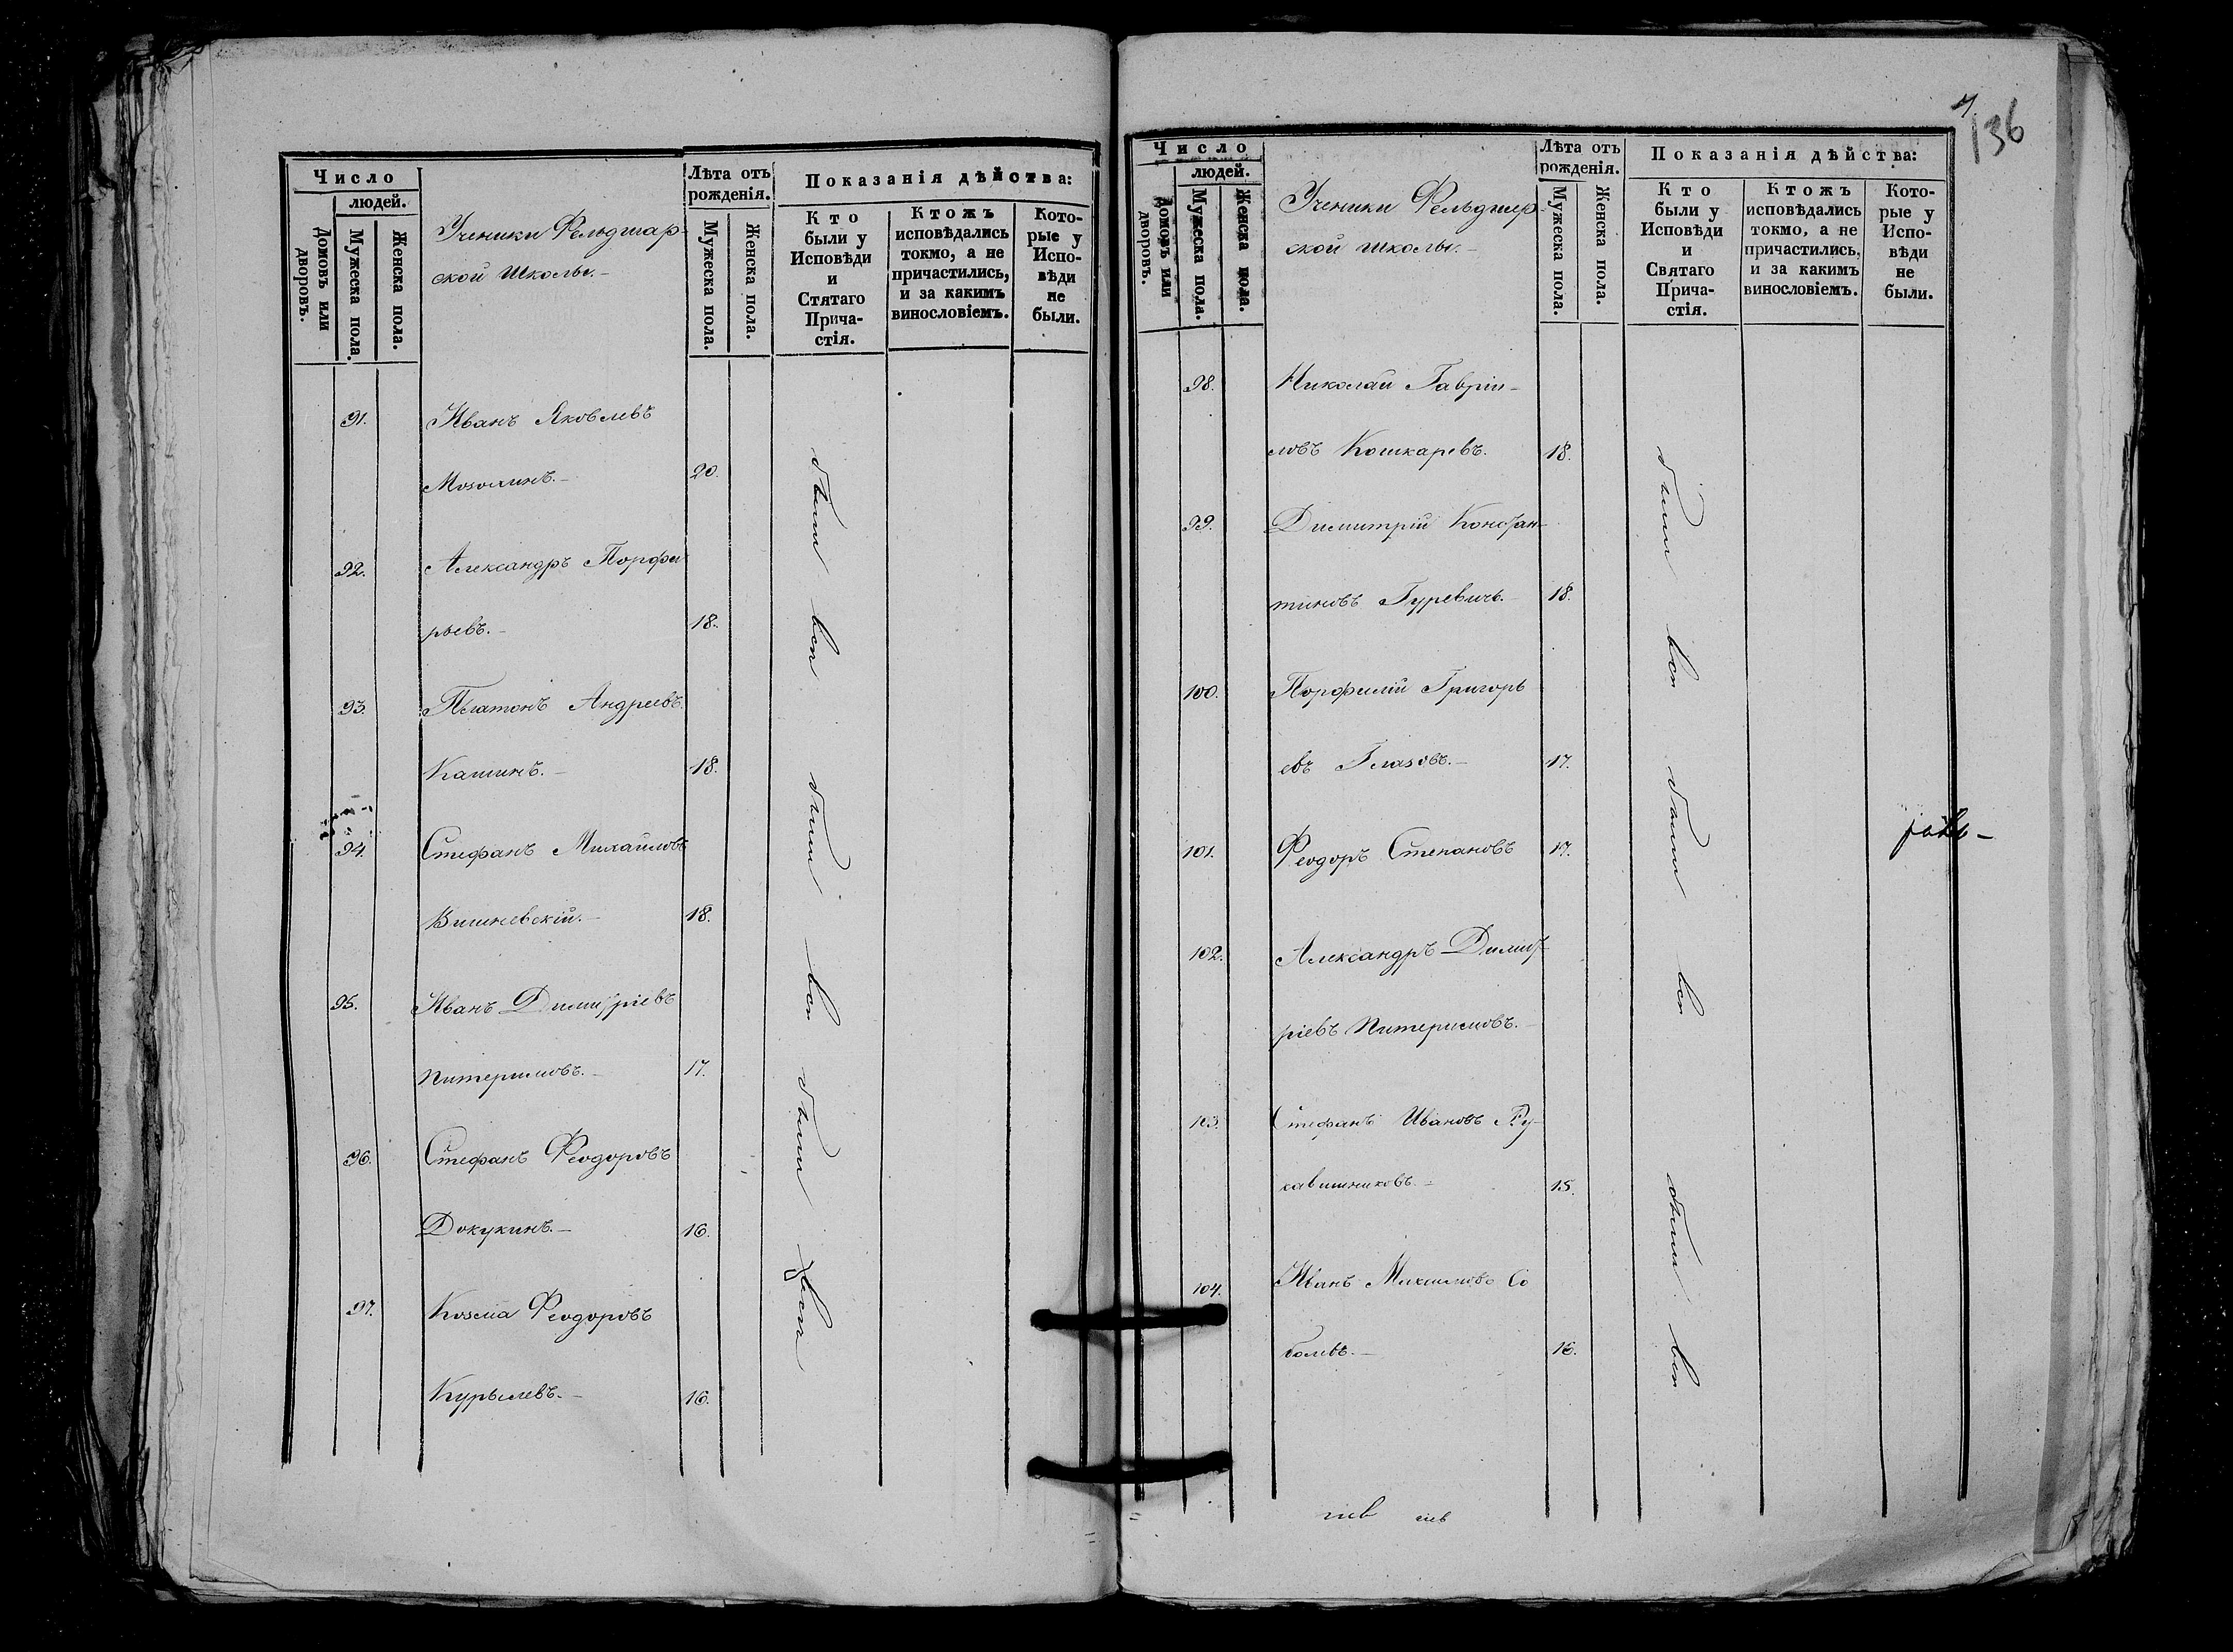 Число
людей.
Домовъ или дворовъ.
Мужеска пола.
Женска пола.
Ученики Фельдшар-
ской Школы.-
Лѣта отъ
рожденія.
Мужеска пола.
Женска пола.
Показанія дѣйства:
Кто
были у
Исповѣди
и
Стятаго
Прича-
стія.
Ктожъ
исповѣдались
токмо, а не
причастились,
и за какимъ
винословіемъ.
Кото-
рые у
Испо-
вѣди
не
были.
91. Иванъ Яковлевъ
20.
92. Александръ Порфи
рьевъ.- 18.
93. Платонъ Андреевъ
Кашинъ.- 18.
94. Стефанъ Михайловъ
Вишневскій.- 18.
95. Иванъ Димитріевъ
Питеримовъ.- 17.
96. Стефанъ Феодоровъ
Докукинъ.- 16.
97. Козма Феодоровъ
Курылевъ.- 16.
были вси были вси были вси
136
Число
людей.
Домовъ или дворовъ.
Мужеска пола.
Женска пола.
Ученики Фельдшер-
ской школы.-
Лѣта отъ
рожденія.
Мужеска пола.
Женска пола.
Показанія дѣйства:
Кто
были у
Исповѣди
и
Святаго
Прича-
стія.
Ктожъ
исповѣдались
токмо, а не
причастились,
и за какимъ
винословіемъ.
Кото-
рые у
Испо-
вѣди
не
были.
98. Николай Гаврiи-
ловъ Кошкаревъ. 18.
99. Димитрій Констан-
тиновъ Гуревичъ.- 18.
100. Порфилій Григорь
евъ Глазовъ.- 17.
101. Феодоръ Степановъ 17.
102. Александръ Димит-
ріевъ Питеримовъ.-
103. Стефанъ Ивановъ Ру-
кавишниковъ.- 15.
104. Иванъ Михаиловъ Со
болевъ.- 16.
были вси были вси были вси